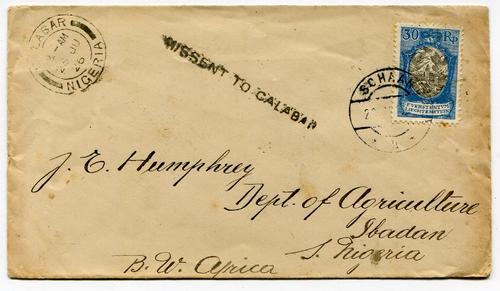 CALABAR
NIGERIA
MISSENT TO CALABAR
30 Rp
SCHAAN
FVERSTENTVM
LIECHTENSTEIN
J. E. Humphrey
Dept. of Agriculture
Ibadan
S. Nigeria
B. W. Africa